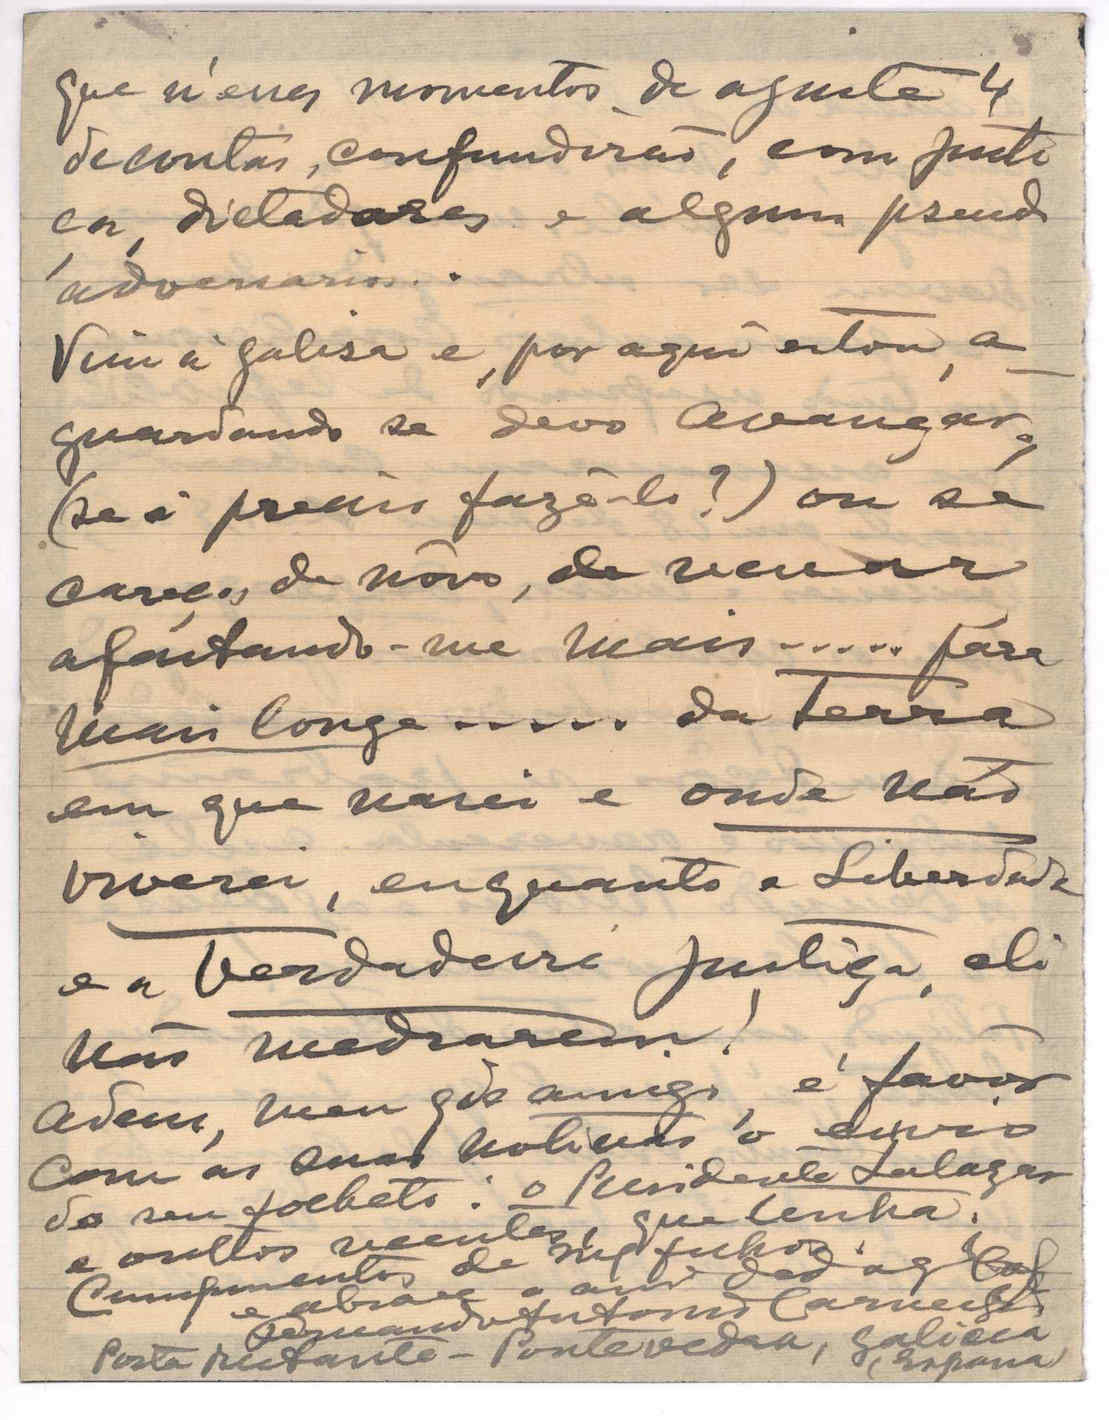 que n'esses momentos de ajuste
de contas, confundirão, com justi
ça, dictadores e alguns pseud
adversarios.
Vim à Galisa e, por aqui estou, a
guardando se devo avançar,
(se é preciso fazê-lo?) ou se
careço, de nôvo, de recuar
afastando-me mais ...... para
mais longe ...... da Terra
em que nasci e onde não
viverei, enquanto a Liberdade
e a Verdadeira Justiça, ali
não medrarem!
Adeus, meu gde amigo, é favôr
com as suas noticias o envio
do seu folheto: o Presidente Salazar
e outros recentes, que tenha.
Cumprimentos de
e abraça o
Fernando Antonio Carneiro
Posta restante - Pontevedra, Galicia
(España)